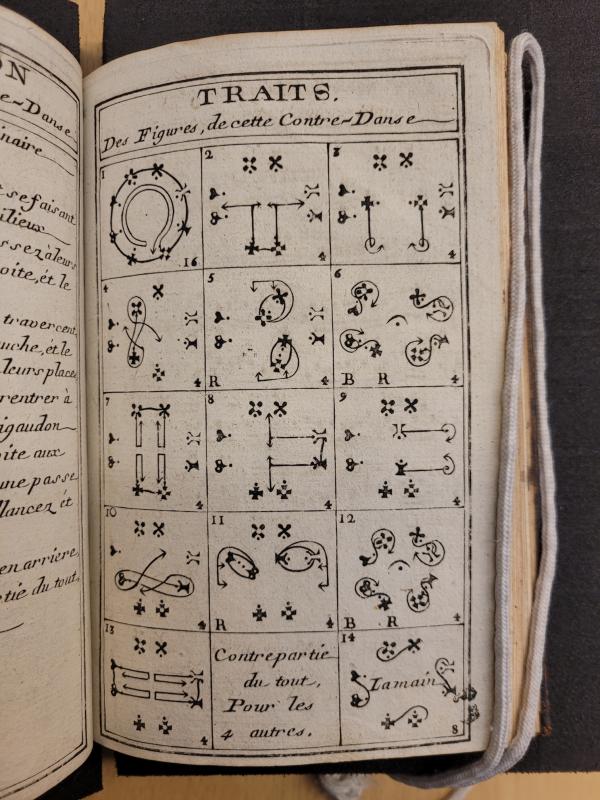 ON
e-Danse
inaire
t se faisant
ilieux
ssez à leurs
oite, ét le
traversent,
uche, ét le
leurs places
rentrer à
igaudon
oite aux
une passe
llancez ét
en arriere,
tie du tout,
TRAITS.
Des Figures, de cette Contre-Danse
1
16
2
4
3
4
4
4
5
R
4
6
B R
4
7
4
8
4
9
4
10
4
11
R
4
12
B R
4
13
4
Contrepartie
du tout,
Pour les
4 autres.
14
Lamain
8